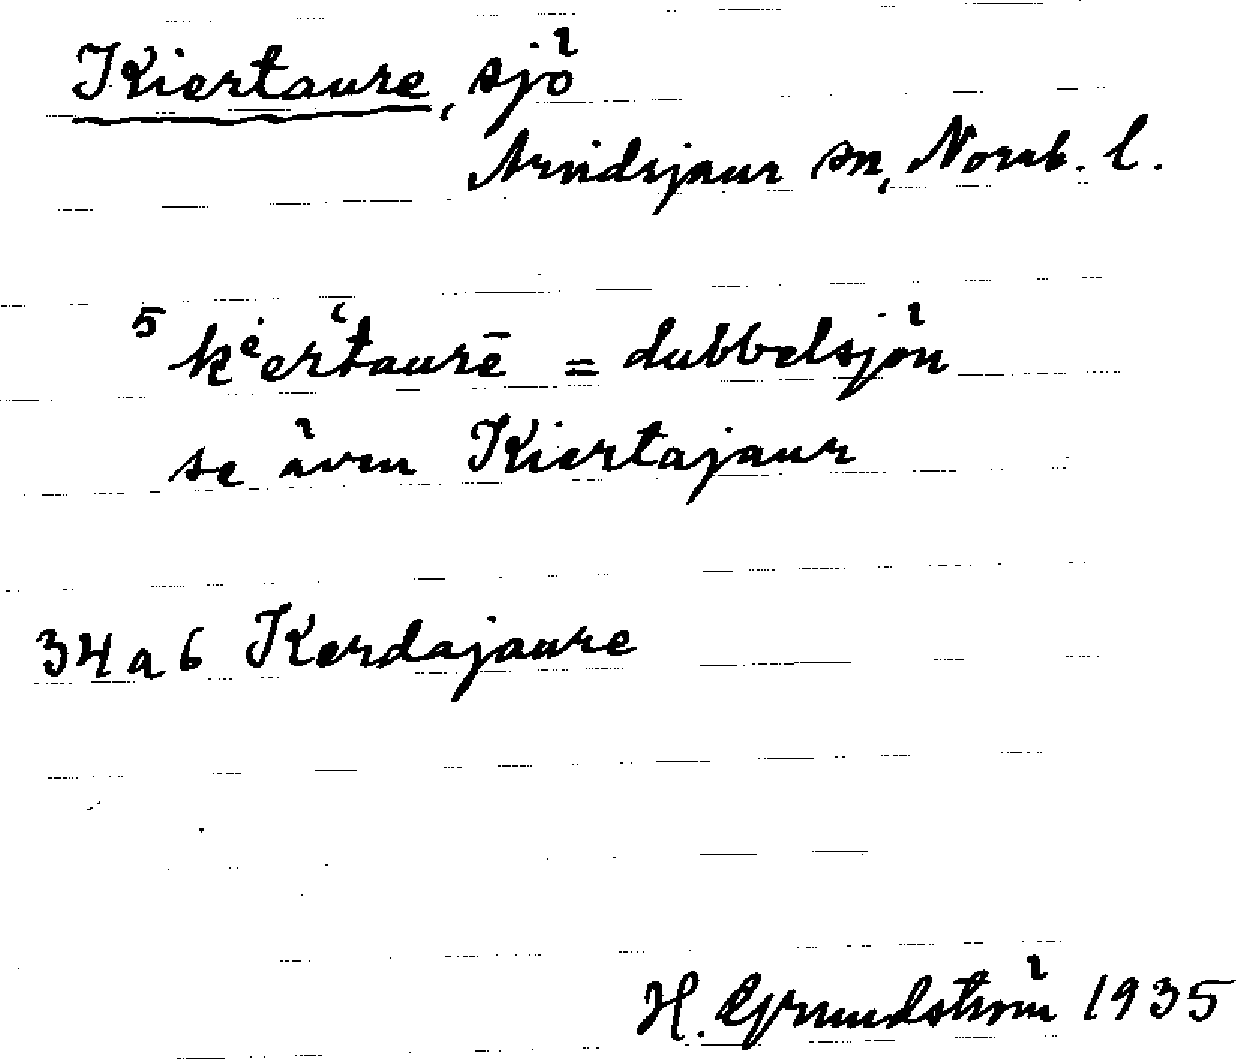 Kiertaure, sjö
Arvidsjaur sn, Norrb. l.
5 kėerʽtaurē = dubbelsjön
se även Kiertajaur
34 a 6 Kerdajaure
H. Grundström 1935